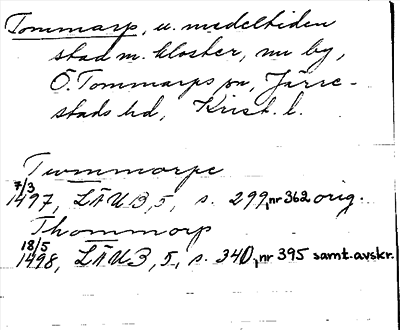 Tommarp, u. medeltiden
stad m. kloster, nu by,
Ö. Tommarps sn, Järre-
stads hd, Krist. l.
Tummorpe
7/3
1497, LÄUB, 5, s. 299, nr 362 orig.
Thommorp
18/5
1498, LÄUB, 5, s. 340, nr 395 samt. avskr.